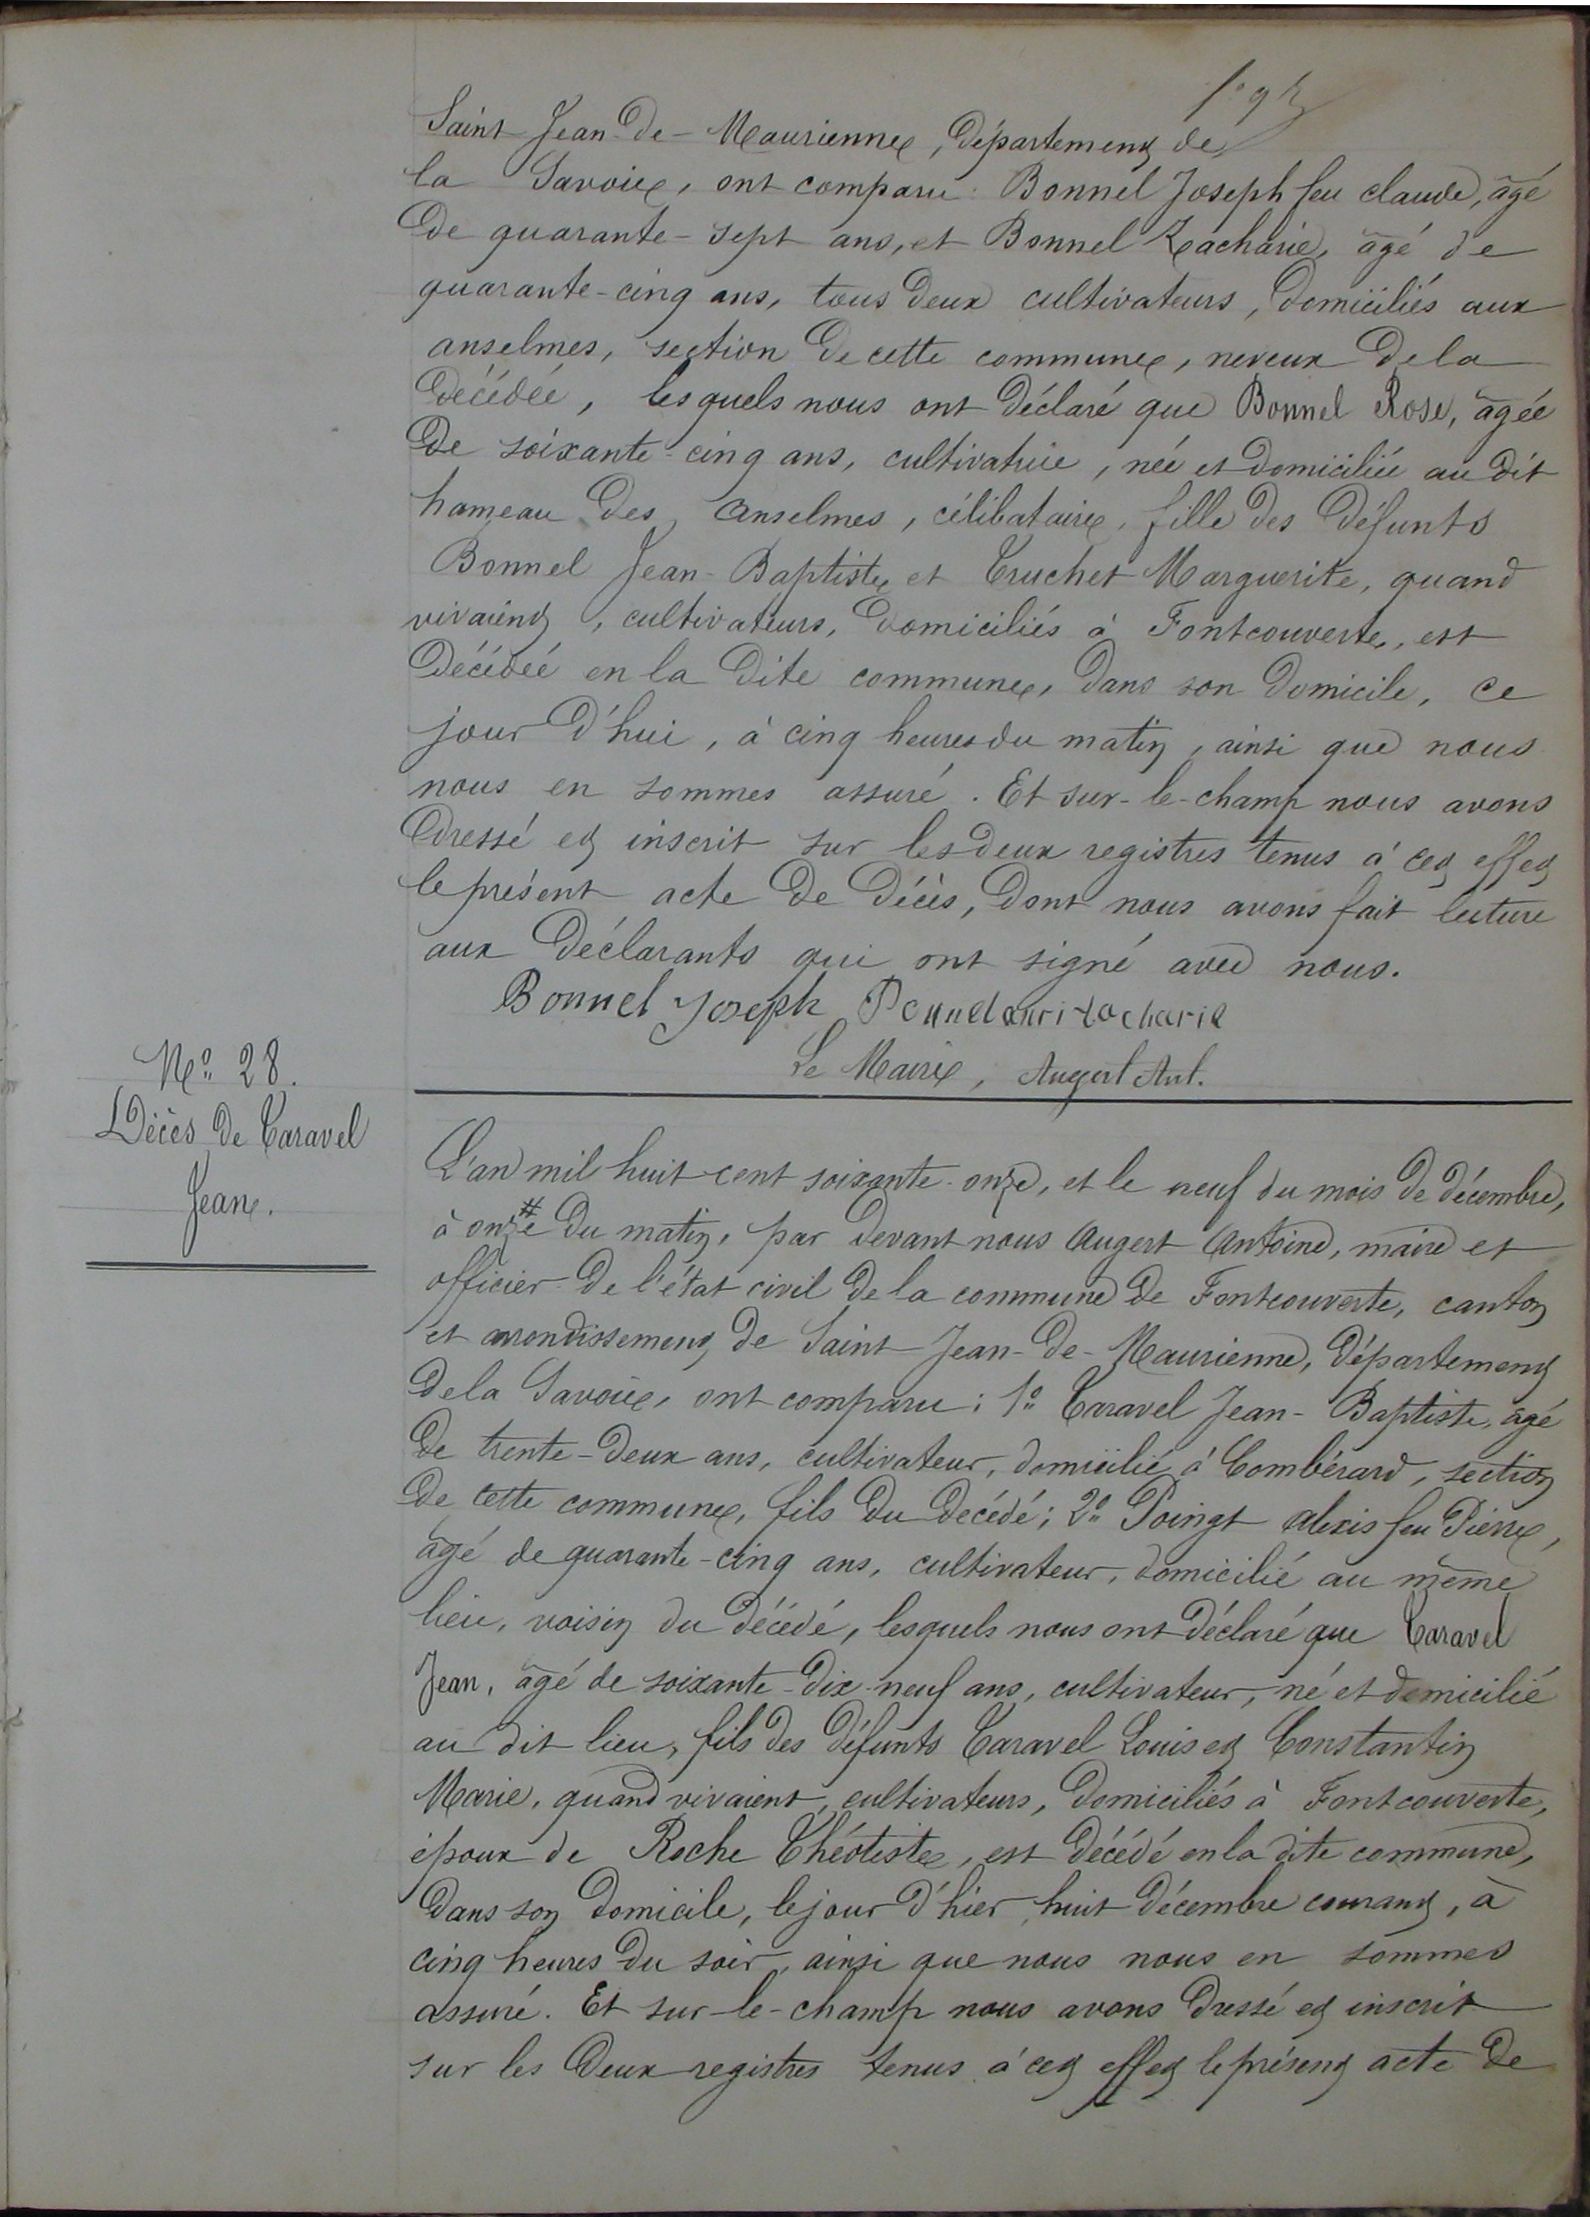 Saint Jean-de-Maurienne, département de
la Savoie, ont comparu : Bonnel Joseph feu claude, âgé
de quarante-sept ans, et Bonnel Zacharie, âgé de
quarante-cinq ans, tous deux cultivateurs, domiciliés aux
anselmes, section de cette commune, neveux de la
décédée, lesquels nous ont déclaré que Bonnel Rose, âgée
de soixante-cinq ans, cultivatrice, née et domiciliée au dit
hameau des Anselmes, célibataire, fille des défunts
Bonnel Jean-Baptiste et Truchet Marguerite, quand
vivaient, cultivateurs, domiciliés à Fontcouverte, est
décédée en la dite commune, dans son domicile, ce
jour d'hui, à cinq heures du matin, ainsi que nous
nous en sommes assuré. Et sur-le-champ nous avons
dressé et inscrit sur les deux registres tenus à cet effet
le présent acte de décès, dont nous avons fait lecture
aux déclarants qui ont signé avec nous.
Bonnel Joseph Bonnel zacharie
Le Maire, Augert Ant.
No 28.
Décès de Taravel
Jean.
L'an mil huit cent soixante-onze, et le neuf du mois de décembre,
à onze # du matin, par devant nous Augert Antoine, maire et
officier de l'état civil de la commune de Fontcouverte, canton
et arrondissement de Saint Jean-de-Maurienne, département
de la Savoie, ont comparu : 1o Taravel Jean-Baptiste, âgé
de trente-deux ans, cultivateur, domicilié à Combérard, section
de cette commune, fils du décédé ; 2o Poingt alexis feu Pierre,
âgé de quarante-cinq ans, cultivateur, domicilié au même
lieu, voisin du décédé, lesquels nous ont déclaré que Taravel
Jean, âgé de soixante-dix-neuf ans, cultivateur, né et domicilié
au dit lieu, fils des défunts Taravel Louis et Constantin
Marie, quand vivaient, cultivateurs, domiciliés à Fontcouverte,
époux de Roche Théotiste, est décédé en la dite commune,
dans son domicile, le jour d'hier, huit décembre courant, à
cinq heures du soir, ainsi que nous nous en sommes
assuré. Et sur-le-champ nous avons dressé et inscrit
sur les deux registres tenus à cet effet le présent acte de